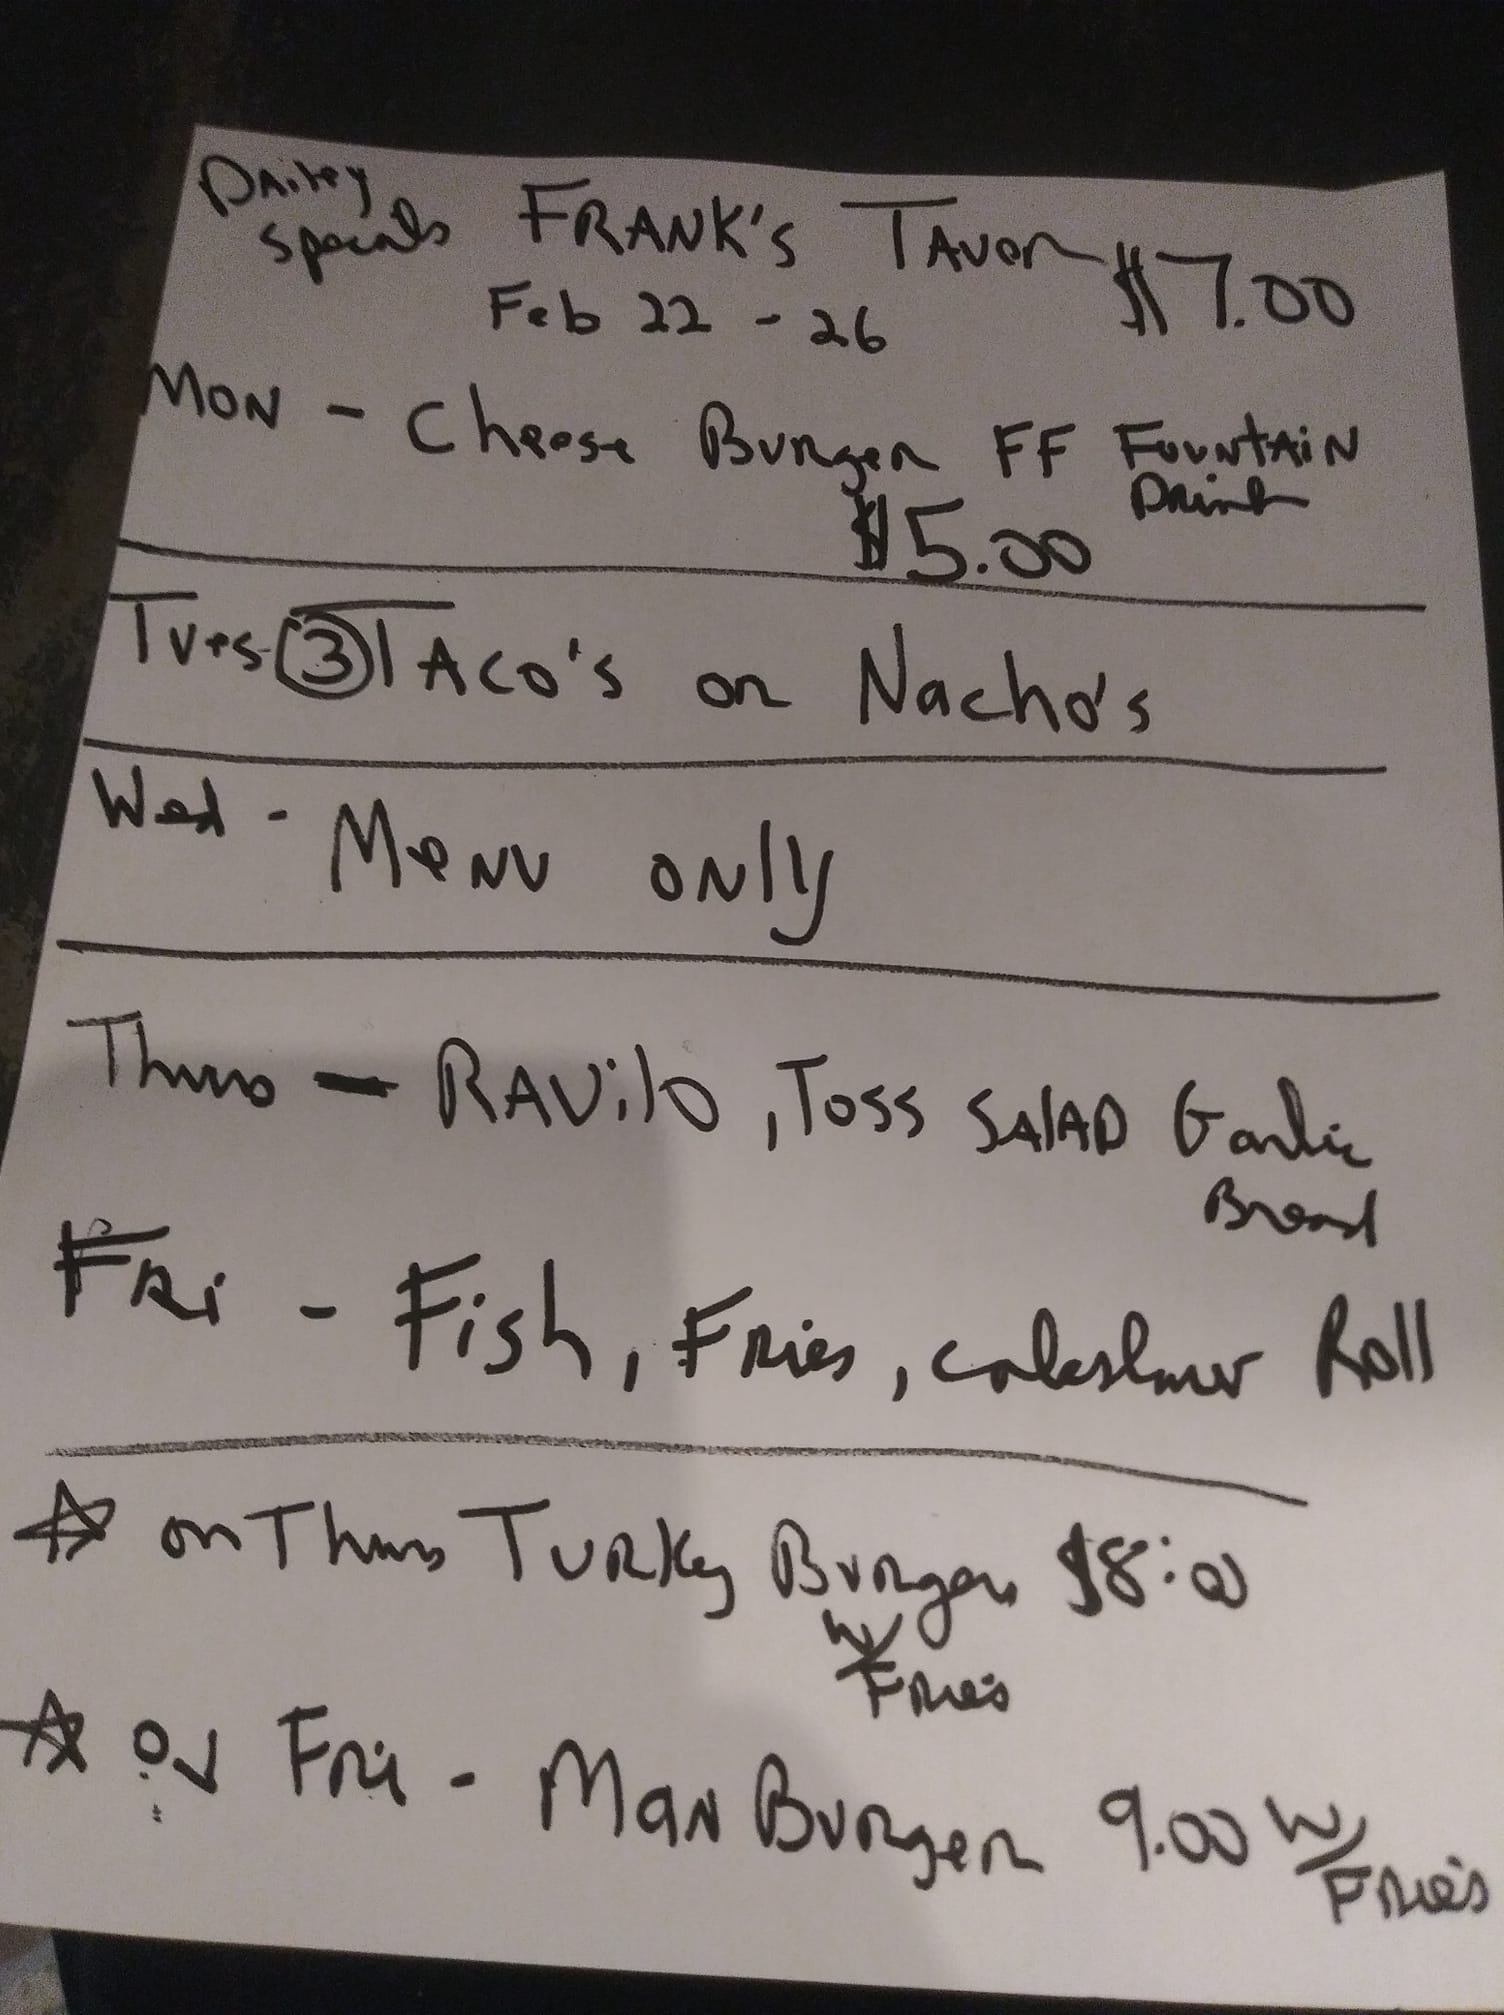 DAiley
Specials FRANK'S TAVern $7.00
Feb 22 - 26
MON - Cheese Burger FF FountAiN
Drink
$5.00
Tues 3 TACO'S or Nacho's
Wed - Menu only
Thurs - RAVilo, Toss SAlAD Garlic
Bread
FRi - Fish, Fries, coleslaw Roll
☆ on Thurs TURKey Burger $8:00
w/
FRies
☆ ON Fri - MaN Burger 9.00 w/
FRies